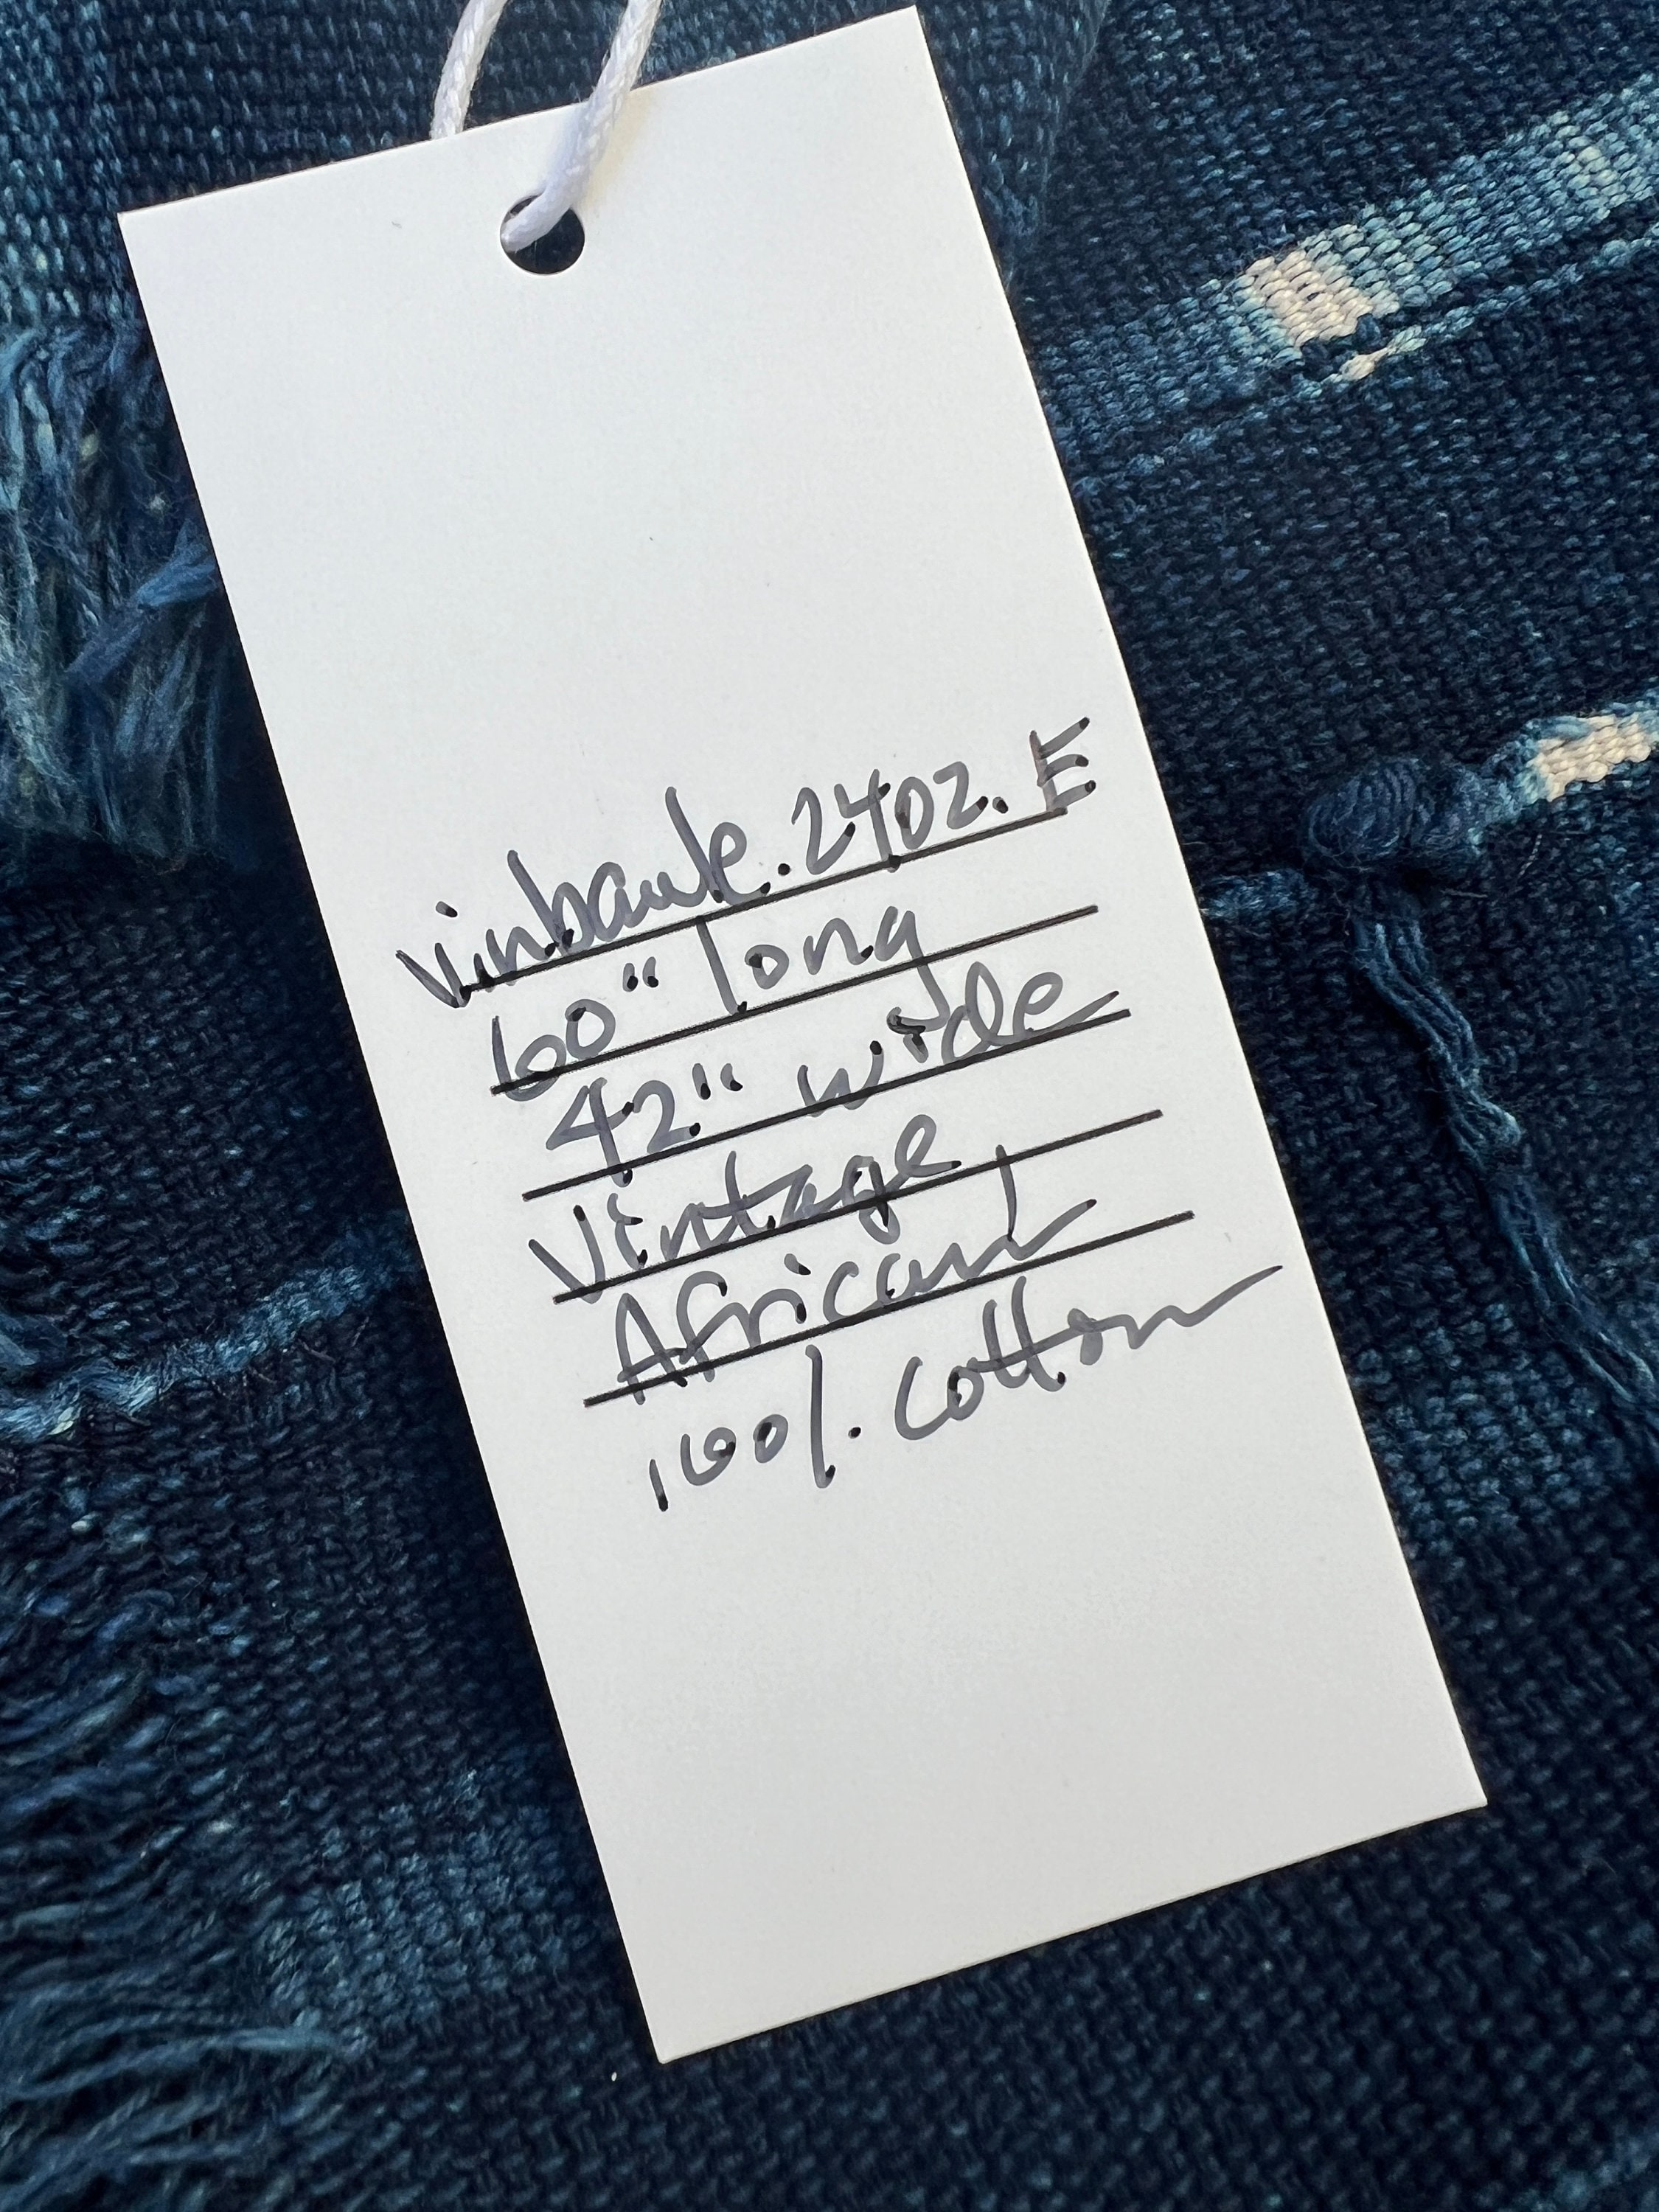 vinbaule.2402.E
60" long
42" wide
Vintage
African
100%. cotton